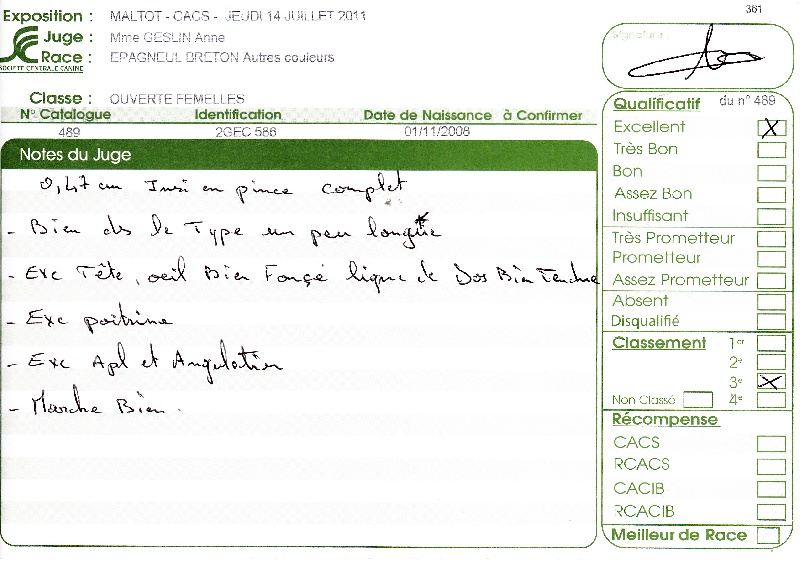 361
Exposition : MALTOT - CACS - JEUDI 14 JUILLET 2011
Juge : Mme GESLIN Anne
Race : EPAGNEUL BRETON Autres couleurs
SOCIETE CENTRALE CANINE
Signature
Classe : OUVERTE FEMELLES
N° Catalogue Identification Date de Naissance à Confirmer
489 2GEC 586 01/11/2008
Notes du Juge
0,47 cm en pince complet
- Bien ds le Type un peu longue
- Exc Tête, oeil Bien Foncé ligne de Dos Bien Tendue
- Exc poitrine
- Exc Apl et Angulation
- Marche Bien.
Qualificatif du n° 489
Excellent X
Très Bon
Bon
Assez Bon
Insuffisant
Très Prometteur
Prometteur
Assez Prometteur
Absent
Disqualifié
Classement 1er
2e
3e X
Non Classé 4e
Récompense
CACS
RCACS
CACIB
RCACIB
Meilleur de Race